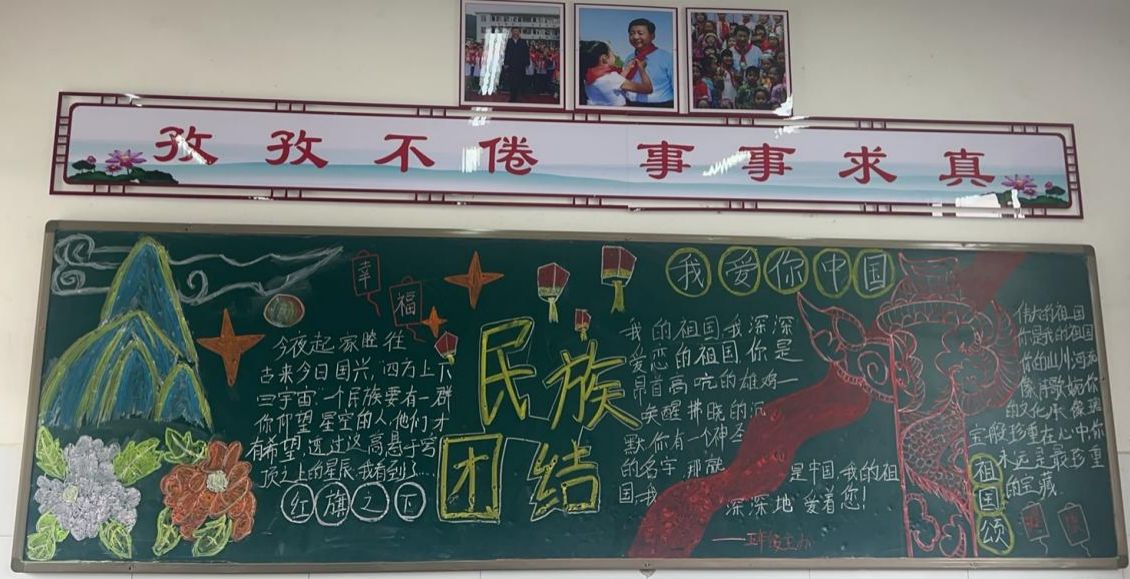 孜孜不倦 事事求真
幸福
今夜起家
古来今日国兴,四方上下
曰宇宙.一个民族要有一群
你仰望星空的人,他们才
有希望,透过这高悬于穹
顶之上的星辰.我看到了...
红旗之下
民族
团结
我爱你中国
我的祖国,我深深
爱恋的祖国.你是
昂首高吭的雄鸡一
唤醒拂晓的沉
默.你有一个神圣
的名字,那就是中国,我的祖
国.我深深地爱着您!
伟大的祖国
你是我的祖国
你的山川河流
像
的文化
宝般珍重在心中.你
永远是最珍重
的宝藏.
祖国颂